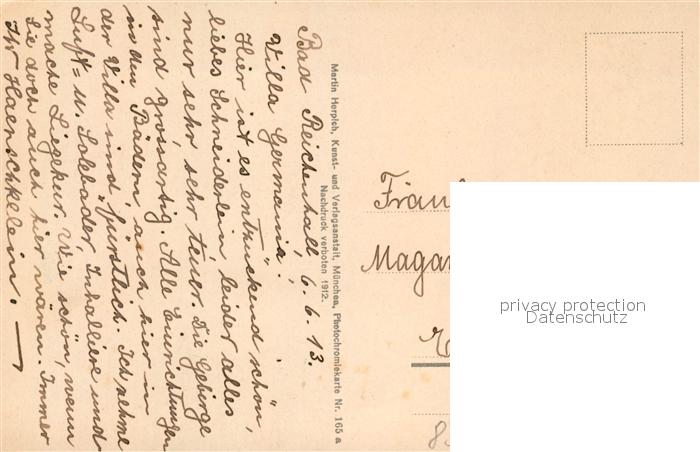 Bad Reichenhall, 6. 6. 13.
Villa Germania.
Hier ist es entzückend schön,
liebes Schneiderlein, leider alles
nur sehr, sehr teuer. Die Gebirge
sind grossartig. Alle Einrichtungen
in den Bädern auch hier in
der Villa sind fürstlich. Ich nehme
Luft= u. Solebäder, Inhalliere und
mache Liegekur. Wie schön, wenn
Sie doch auch hier wären. Immer
Ihr Haenschklein.
Martin Herpich, Kunst- und Verlagsanstalt, München, Photochromiekarte Nr. 165 a
Nachdruck verboten 1912.
Fräul
Magar
privacy protection
Datenschutz